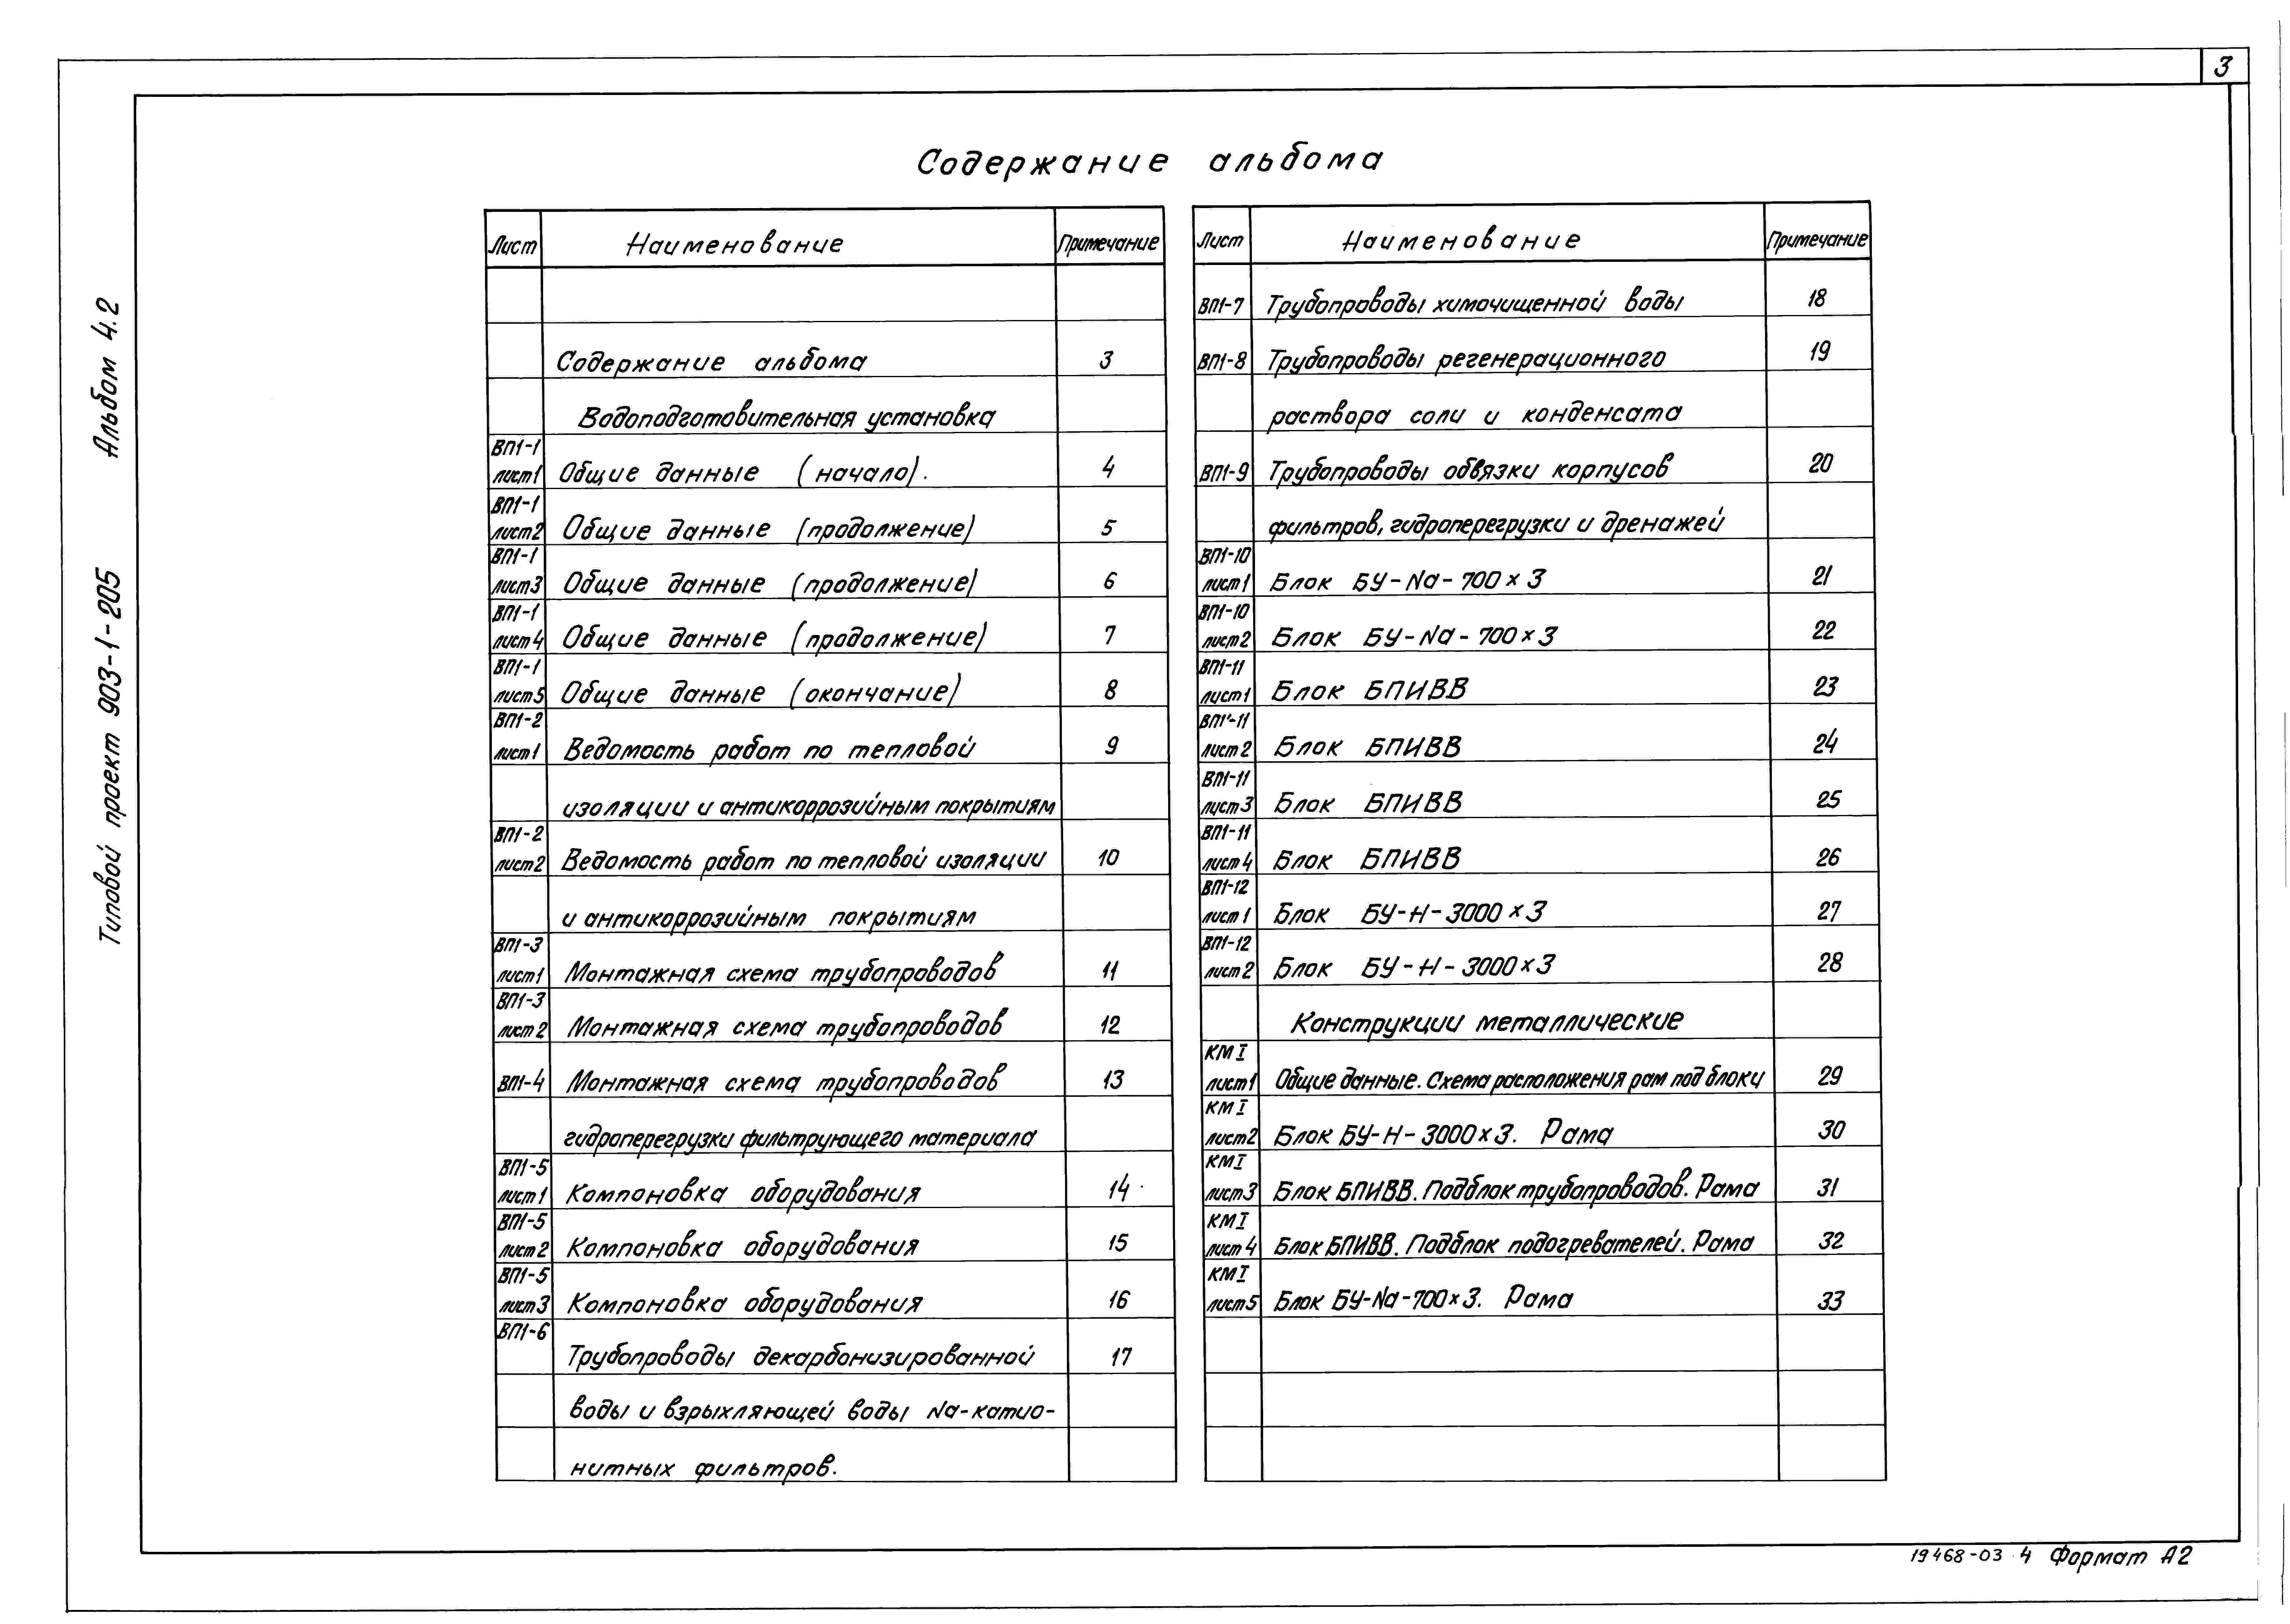 3
Содержание альбома
Альбом 4.2
Типовой проект 903-1-205
Лист Наименование Примечание
Содержание альбома 3
Водоподготовительная установка
ВП1-1
лист1 Общие данные (начало). 4
ВП1-1
лист2 Общие данные (продолжение) 5
ВП1-1
лист3 Общие данные (продолжение) 6
ВП1-1
лист4 Общие данные (продолжение) 7
ВП1-1
лист5 Общие данные (окончание) 8
ВП1-2
лист1 Ведомость работ по тепловой 9
изоляции и антикоррозийным покрытиям
ВП1-2
лист2 Ведомость работ по тепловой изоляции 10
и антикоррозийным покрытиям
ВП1-3
лист1 Монтажная схема трубопроводов 11
ВП1-3
лист2 Монтажная схема трубопроводов 12
ВП1-4 Монтажная схема трубопроводов 13
гидроперегрузки фильтрующего материала
ВП1-5
лист1 Компоновка оборудования 14
ВП1-5
лист2 Компоновка оборудования 15
ВП1-5
лист3 Компоновка оборудования 16
ВП1-6
Трубопроводы декарбонизированной 17
воды и взрыхляющей воды Na-катио-
нитных фильтров.
Лист Наименование Примечание
ВП1-7 Трубопроводы химочищенной воды 18
ВП1-8 Трубопроводы регенерационного 19
раствора соли и конденсата
ВП1-9 Трубопроводы обвязки корпусов 20
фильтров, гидроперегрузки и дренажей
ВП1-10
лист1 Блок БУ-Na-700×3 21
ВП1-10
лист2 Блок БУ-Na-700×3 22
ВП1-11
лист1 Блок БПИВВ 23
ВП1-11
лист2 Блок БПИВВ 24
ВП1-11
лист3 Блок БПИВВ 25
ВП1-11
лист4 Блок БПИВВ 26
ВП1-12
лист1 Блок БУ-Н-3000×3 27
ВП1-12
лист2 Блок БУ-Н-3000×3 28
Конструкции металлические
КМ I
лист1 Общие данные. Схема расположения рам под блоки 29
КМ I
лист2 Блок БУ-Н-3000×3. Рама 30
КМ I
лист3 Блок БПИВВ. Подблок трубопроводов. Рама 31
КМ I
лист4 Блок БПИВВ. Подблок подогревателей. Рама 32
КМ I
лист5 Блок БУ-Na-700×3. Рама 33
19468-03 4 Формат А2